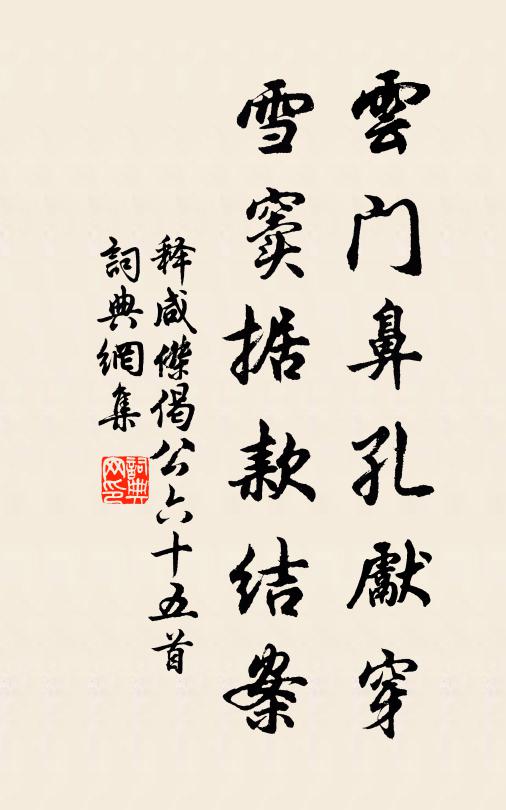 雲门鼻孔獻穿
雪窦据款结案
释咸傑偈公六十五首
詞典網集
詞典网印